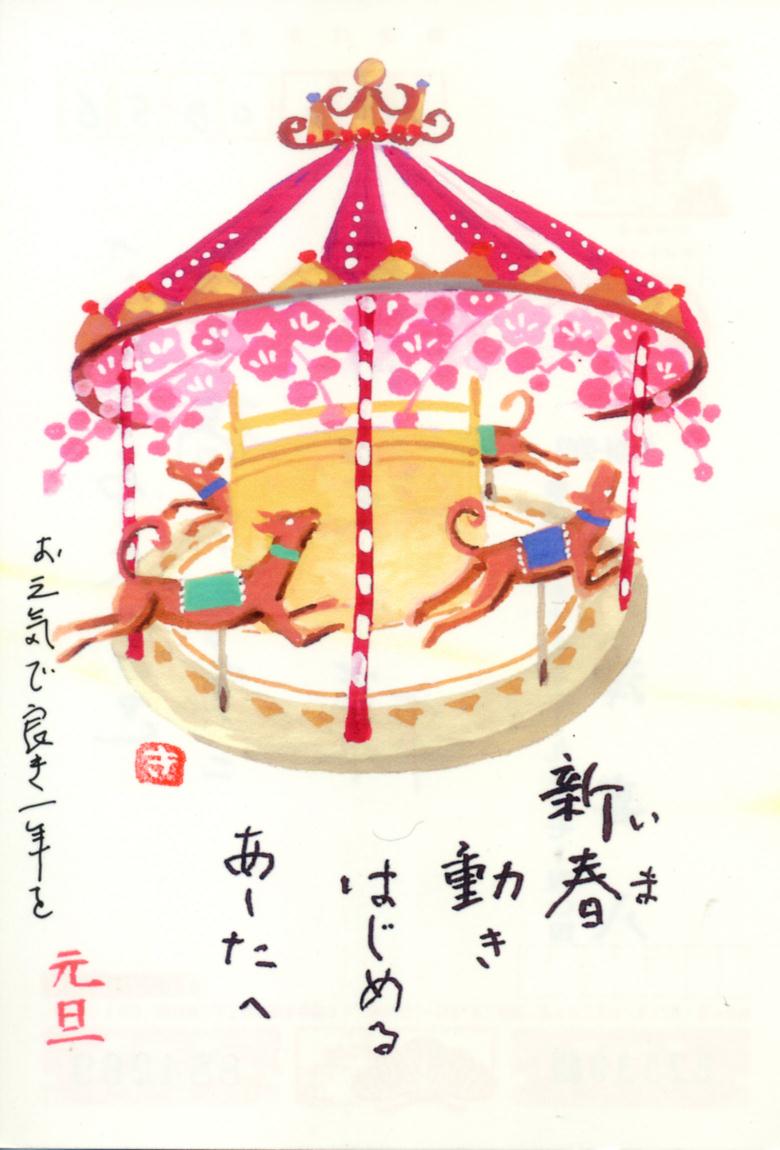 いま
新春
動き
はじめる
あしたへ
お元気で良き一年を
元旦